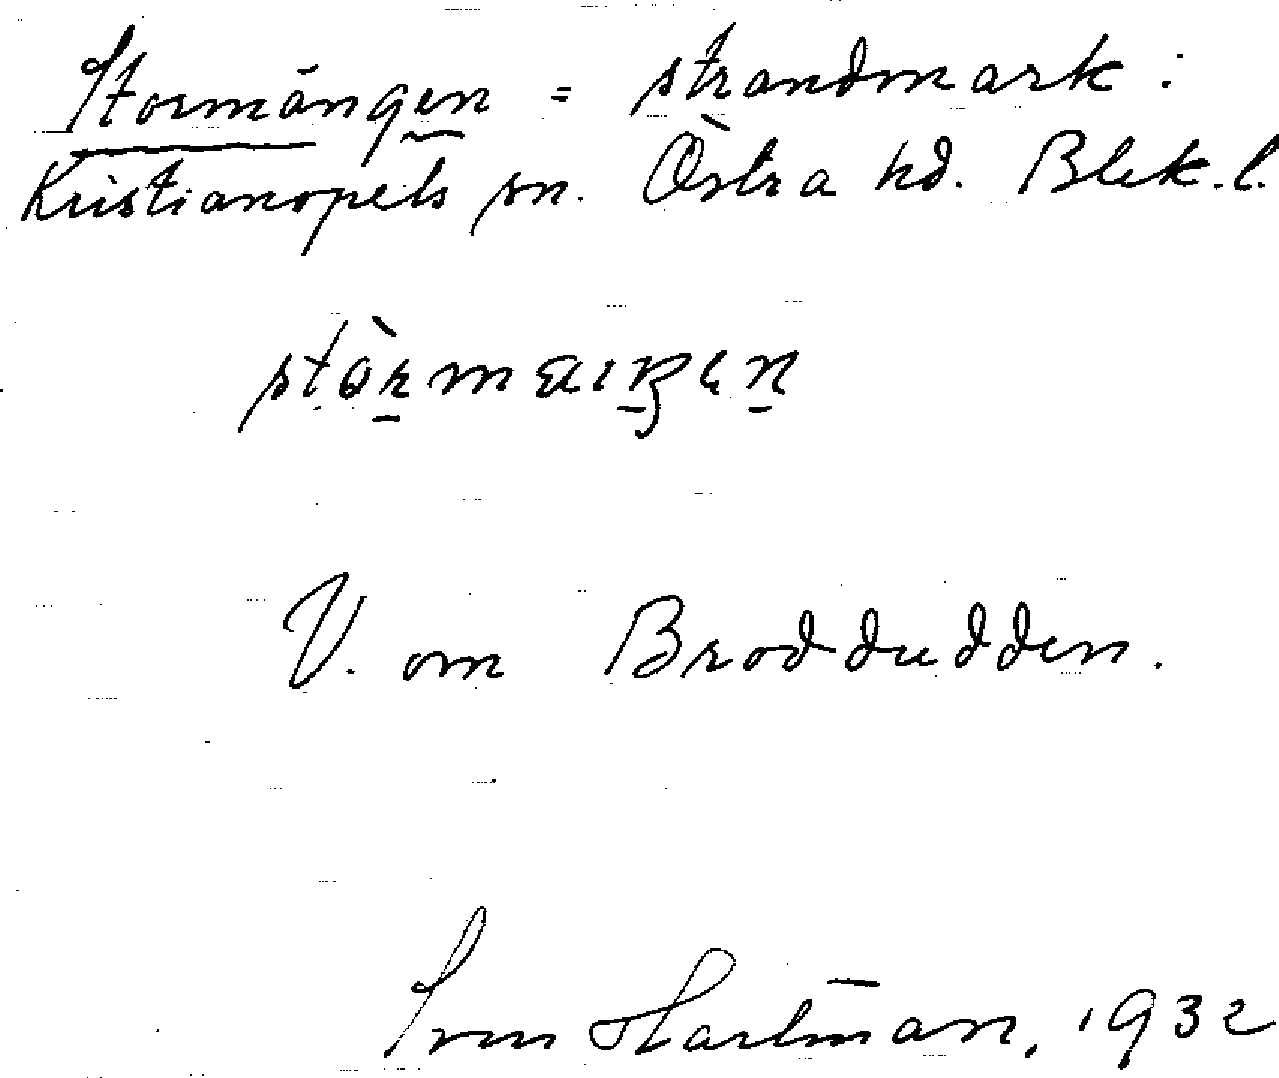 Stormängen = strandmark:
Kristianopels sn. Östra hd. Blek. l.
V. om Broddudden.
Sven Hartman, 1932